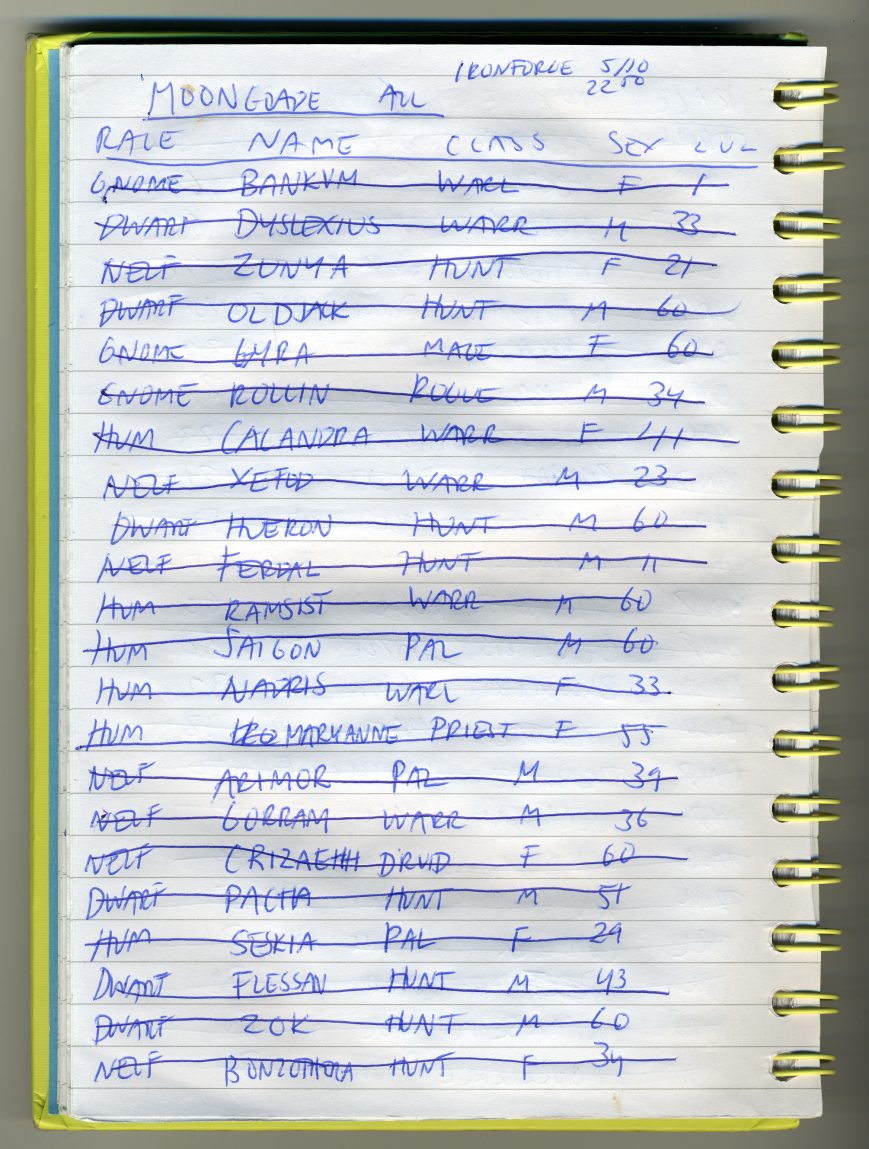 IRONFORGE 5/10
22 50
MOONGLADE ALL
RACE NAME CLASS SEX LVL
GNOME BANKUM WARL F 1
DWARF DYSLEXIUS WARR M 33
NELF ZUNYA HUNT F 21
DWARF OLDJACK HUNT M 60
GNOME GYRA MAGE F 60
GNOME ROLLIN ROGUE M 34
HUM CALANDRA WARR F 41
NELF WARR M 23
DWARF HUERON HUNT M 60
NELF FERDAL HUNT M 11
HUM RAMSIST WARR M 60
HUM SAIGON PAL M 60
HUM NAVRIS WARL F 33
HUM MARYANNE PRIEST F 55
NELF ARIMOR PAL M 39
NELF GORRAM WARR M 36
NELF CRIZAEHH DRUID F 60
DWARF PACHA HUNT M 51
HUM SESKIA PAL F 29
DWARF FLESSAN HUNT M 43
DWARF ZOK HUNT M 60
NELF HUNT F 34